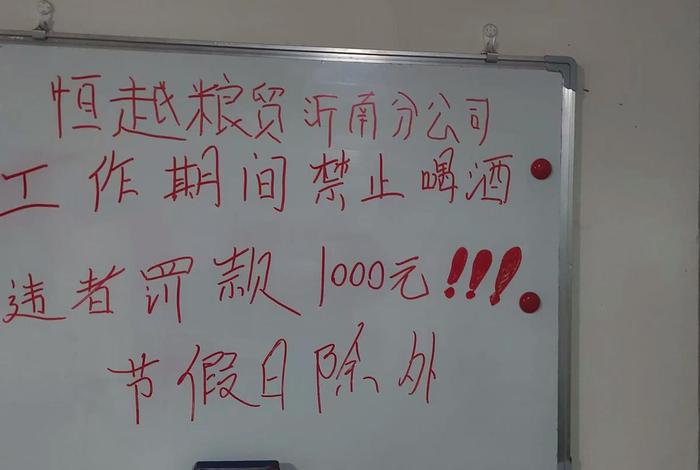 恒越粮贸沂南分公司
工作期间禁止喝酒
违者罚款1000元!!!
节假日除外